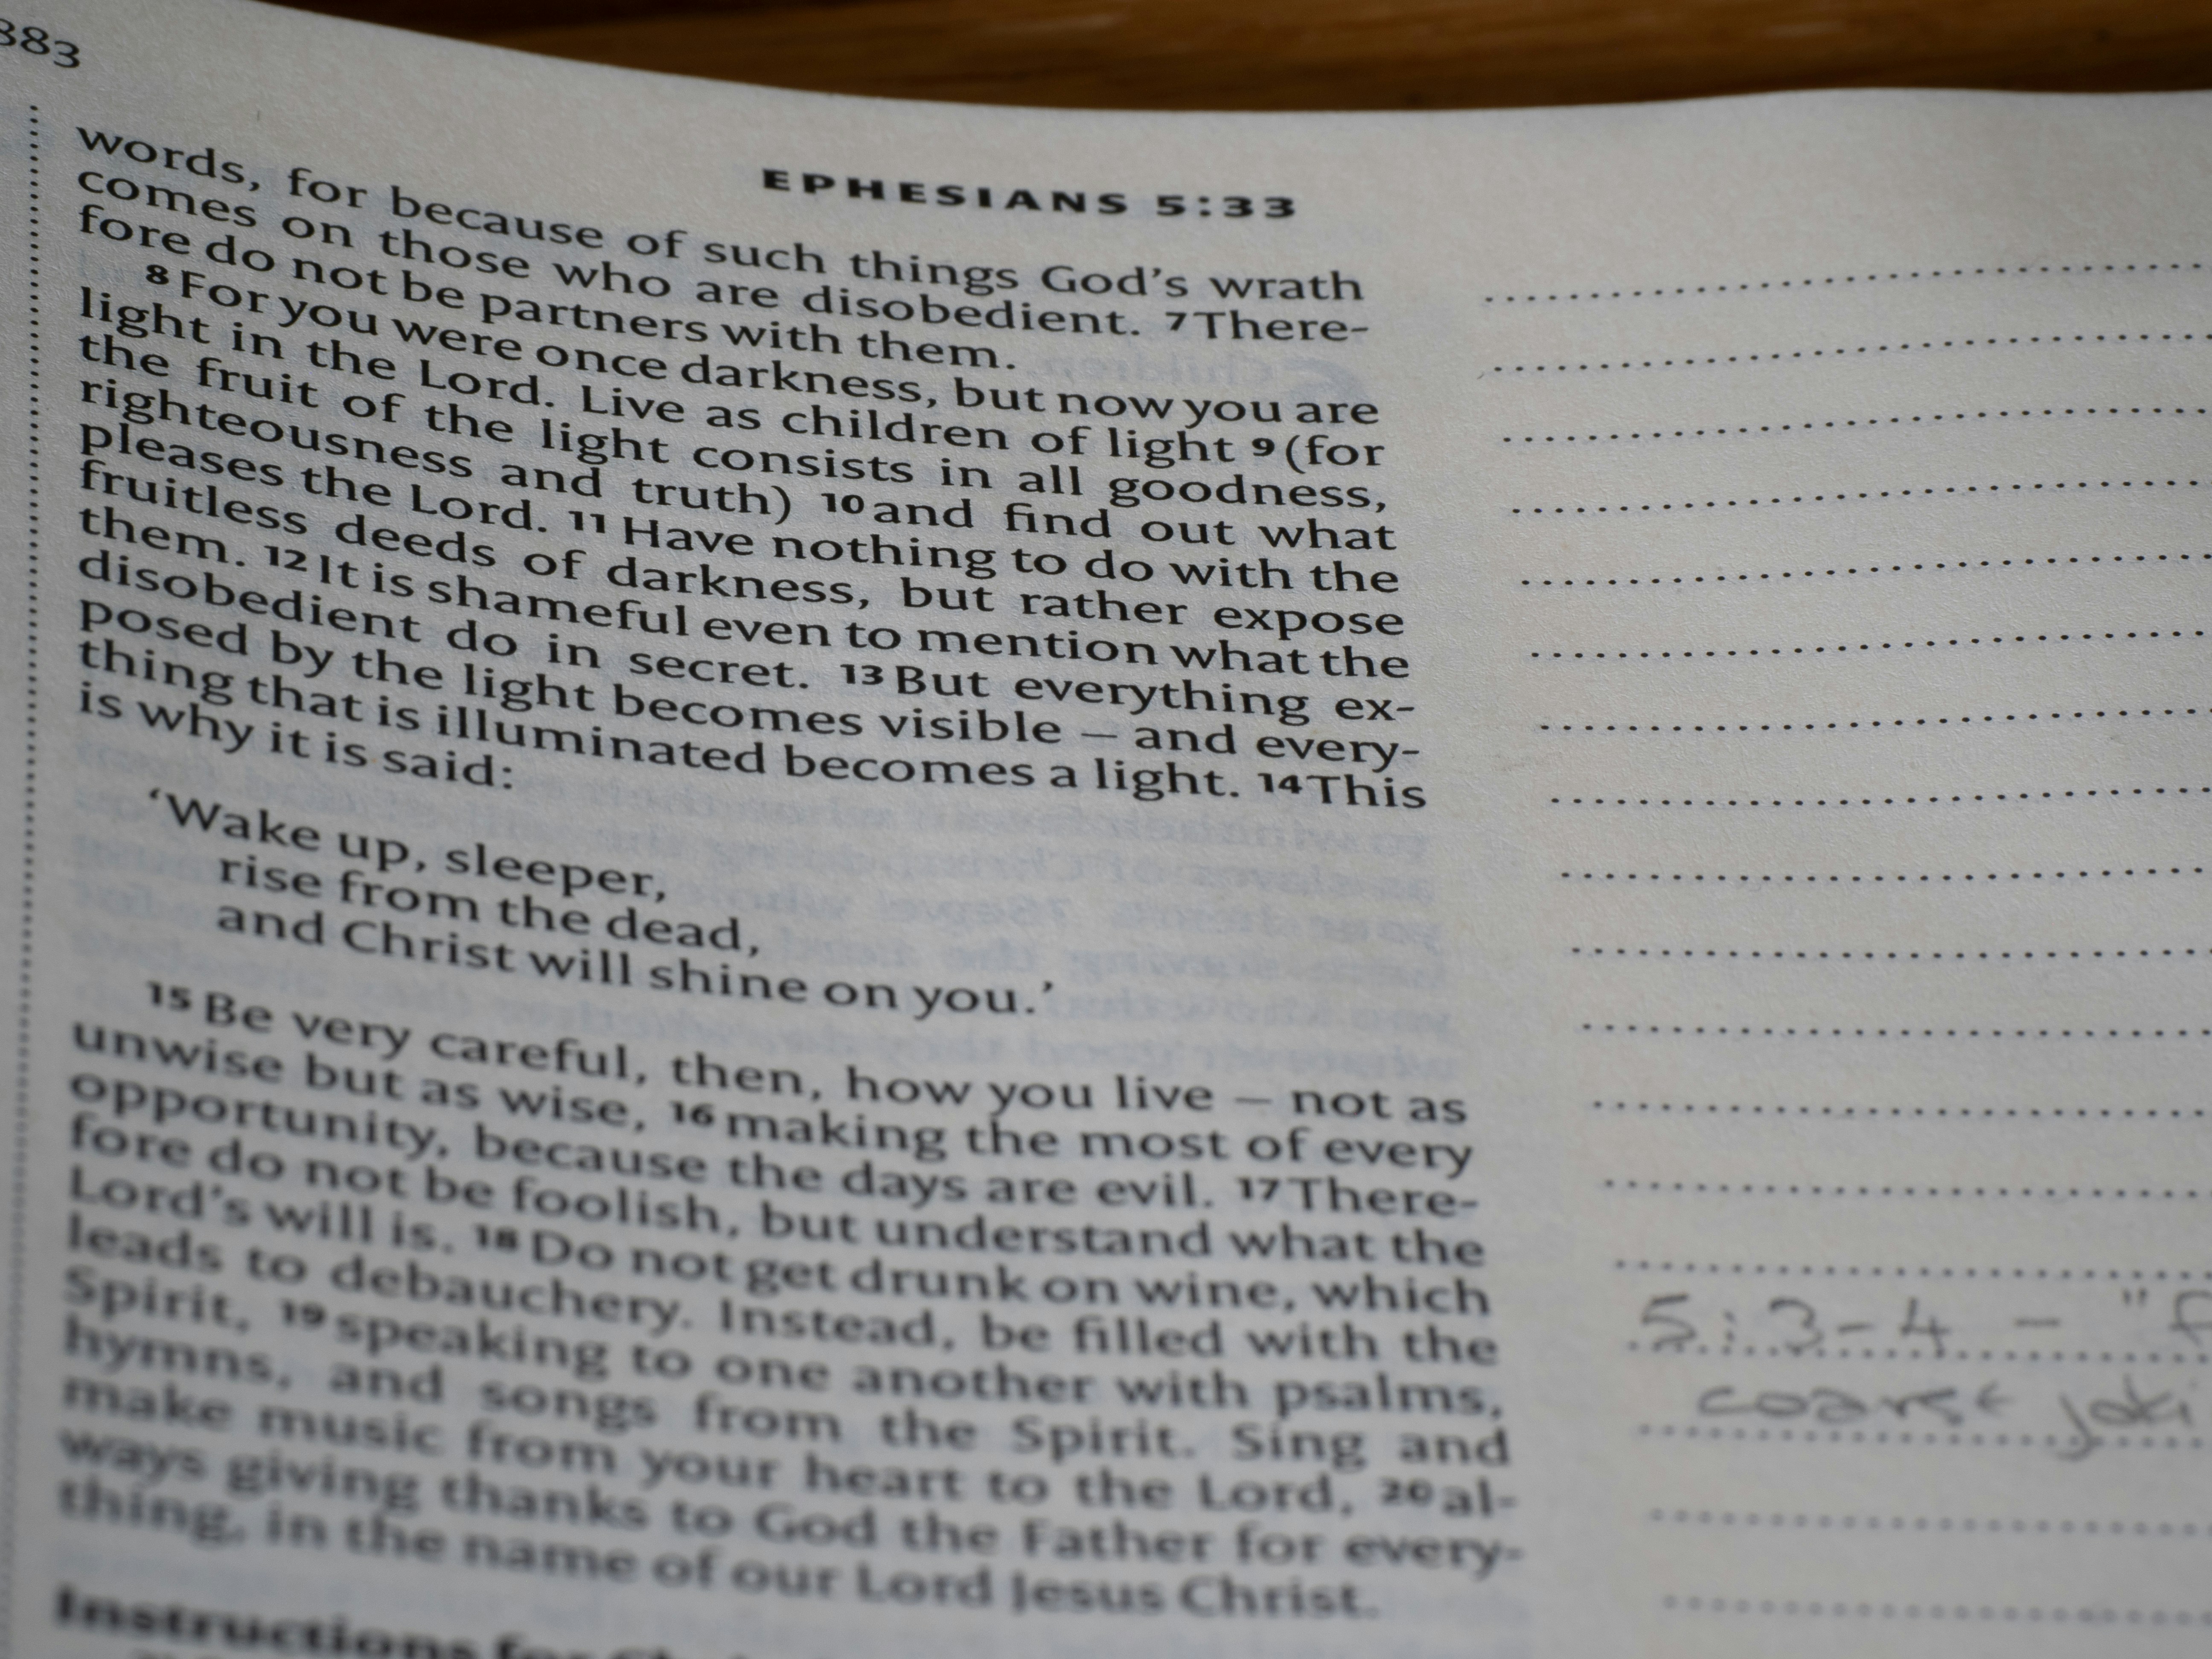 883
EPHESIANS 5:33
words, for because of such things God's wrath
comes on those who are disobedient. 7 There-
fore do not be partners with them.
8 For you were once darkness, but now you are
light in the Lord. Live as children of light 9 (for
the fruit of the light consists in all goodness,
righteousness and truth) 10 and find out what
pleases the Lord. 11 Have nothing to do with the
fruitless deeds of darkness, but rather expose
them. 12 It is shameful even to mention what the
disobedient do in secret. 13 But everything ex-
posed by the light becomes visible – and every-
thing that is illuminated becomes a light. 14 This
is why it is said:
‘Wake up, sleeper,
rise from the dead,
and Christ will shine on you.’
15 Be very careful, then, how you live – not as
unwise but as wise, 16 making the most of every
opportunity, because the days are evil. 17 There-
fore do not be foolish, but understand what the
Lord's will is. 18 Do not get drunk on wine, which
leads to debauchery. Instead, be filled with the
Spirit, 19 speaking to one another with psalms,
hymns, and songs from the Spirit. Sing and
make music from your heart to the Lord, 20 al-
ways giving thanks to God the Father for every-
thing, in the name of our Lord Jesus Christ.
Instructions for
5:3-4 - "
coarse joki